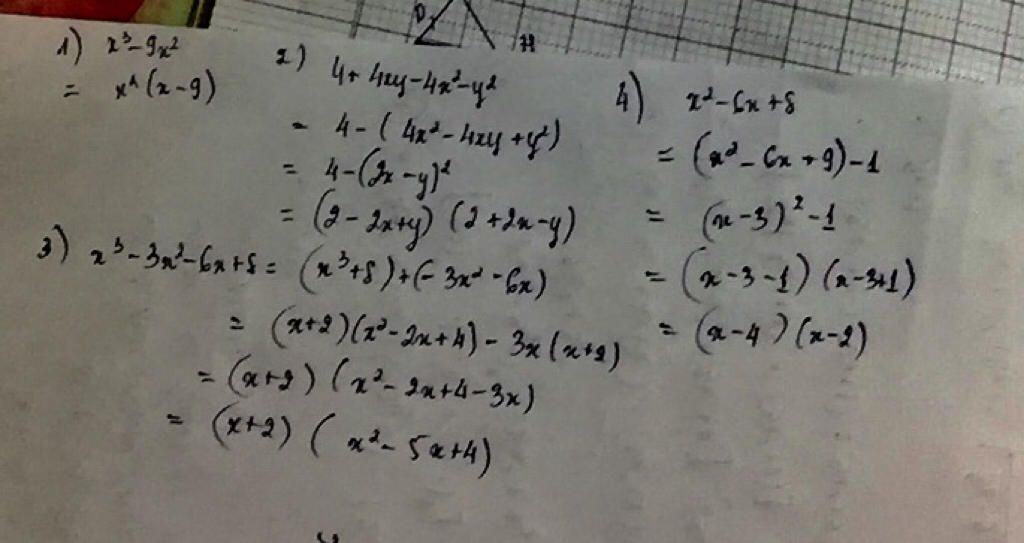 D
H
1) x³-9x²
= x²(x-9)
2) 4+4xy-4x²-y²
= 4-(4x²-4xy+y²)
= 4-(2x-y)²
= (2-2x+y)(2+2x-y)
3) x³-3x²-6x+8 = (x³+8)+(-3x²-6x)
= (x+2)(x²-2x+4)-3x(x+2)
= (x+2)(x²-2x+4-3x)
= (x+2)(x²-5x+4)
4) x²-6x+8
= (x²-6x+9)-1
= (x-3)²-1
= (x-3-1)(x-3+1)
= (x-4)(x-2)